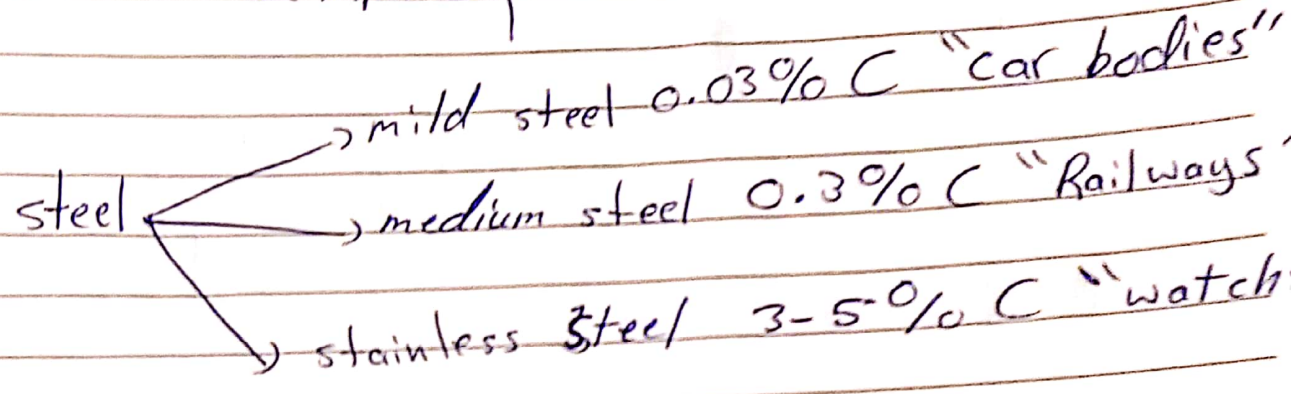 mild steel 0.03% C "car bodies"
steel
medium steel 0.3% C "Railways"
stainless steel 3-5% C "watch